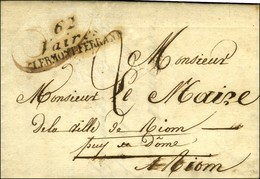 62
CLERMONT-FERRAND
Monsieur
Monsieur Le Maire
de la ville de Riom
puy de Dôme
A Riom